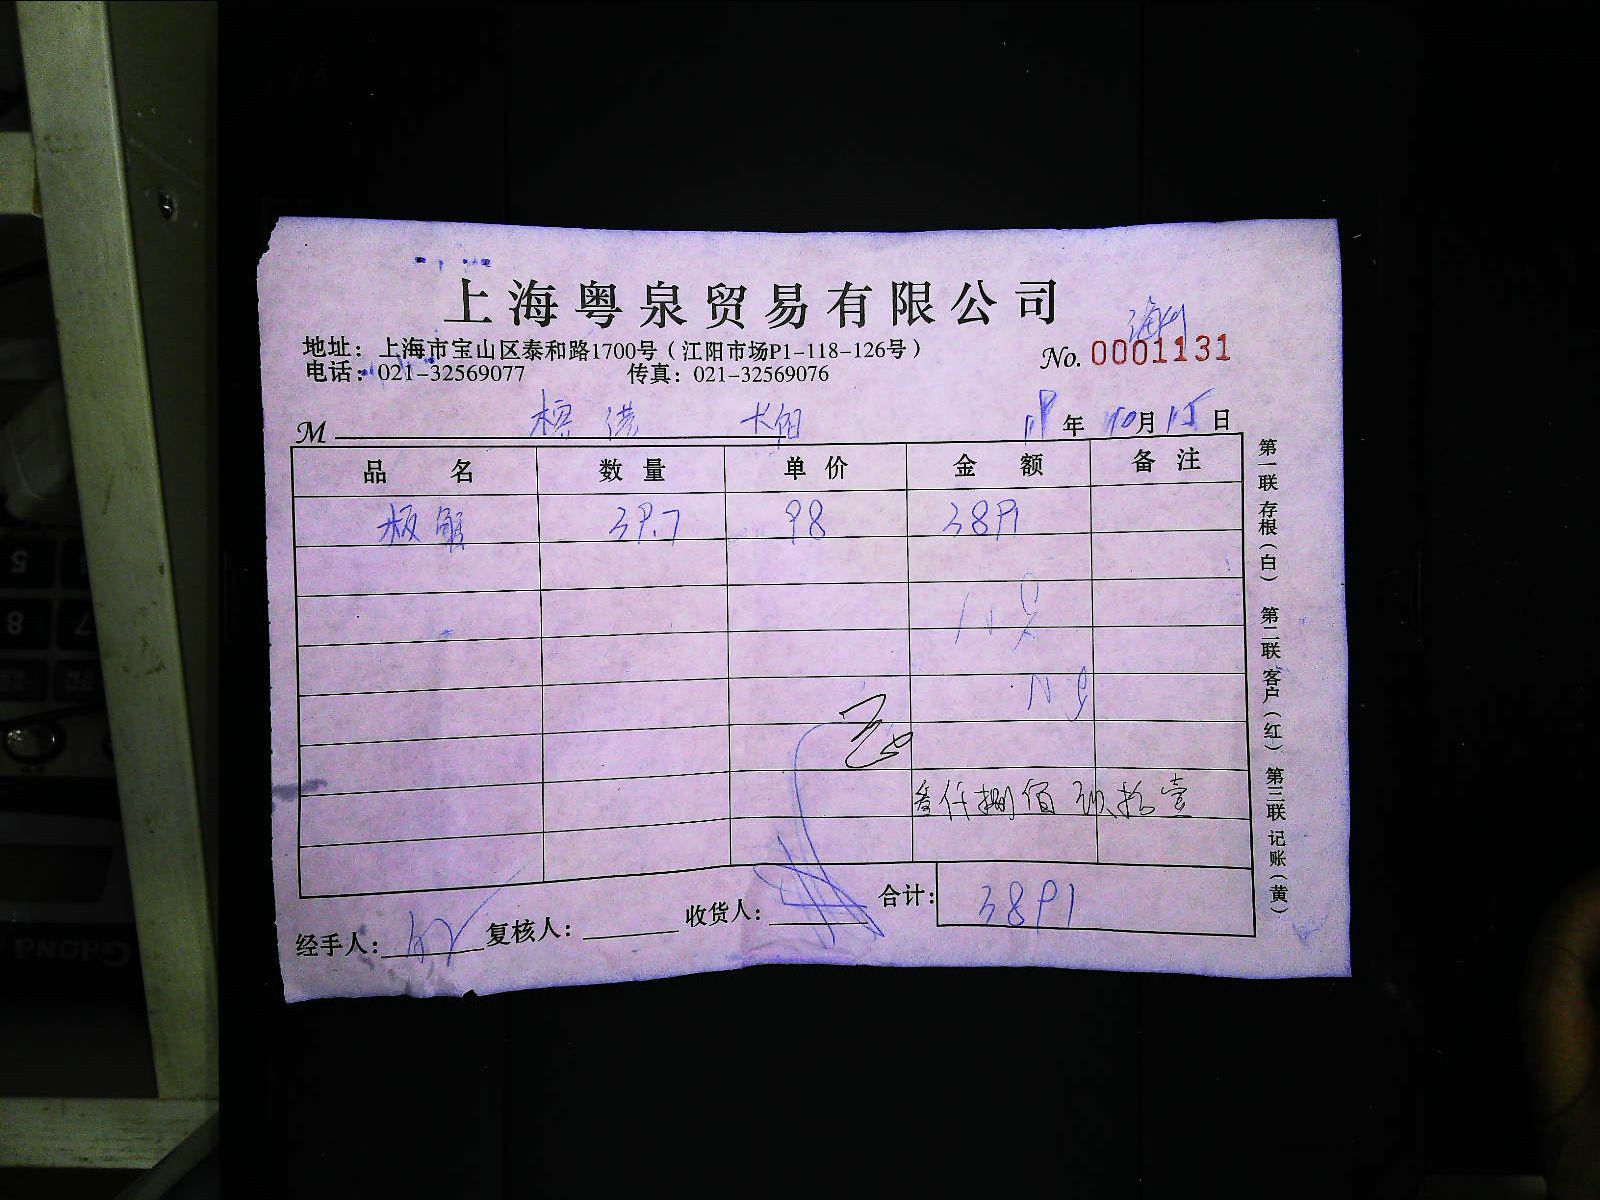 上海粤泉贸易有限公司
地址：上海市宝山区泰和路1700号（江阳市场P1-118-126号）
电话：021-32569077 传真：021-32569076
No. 0001131
M 年 10月15日
品名 数量 单价 金额 备注
板蟹 39.7 98 3891
叁仟捌佰玖拾壹
合计：3891
经手人： 复核人： 收货人：
第一联存根（白） 第二联客户（红） 第三联记账（黄）
5
8
7